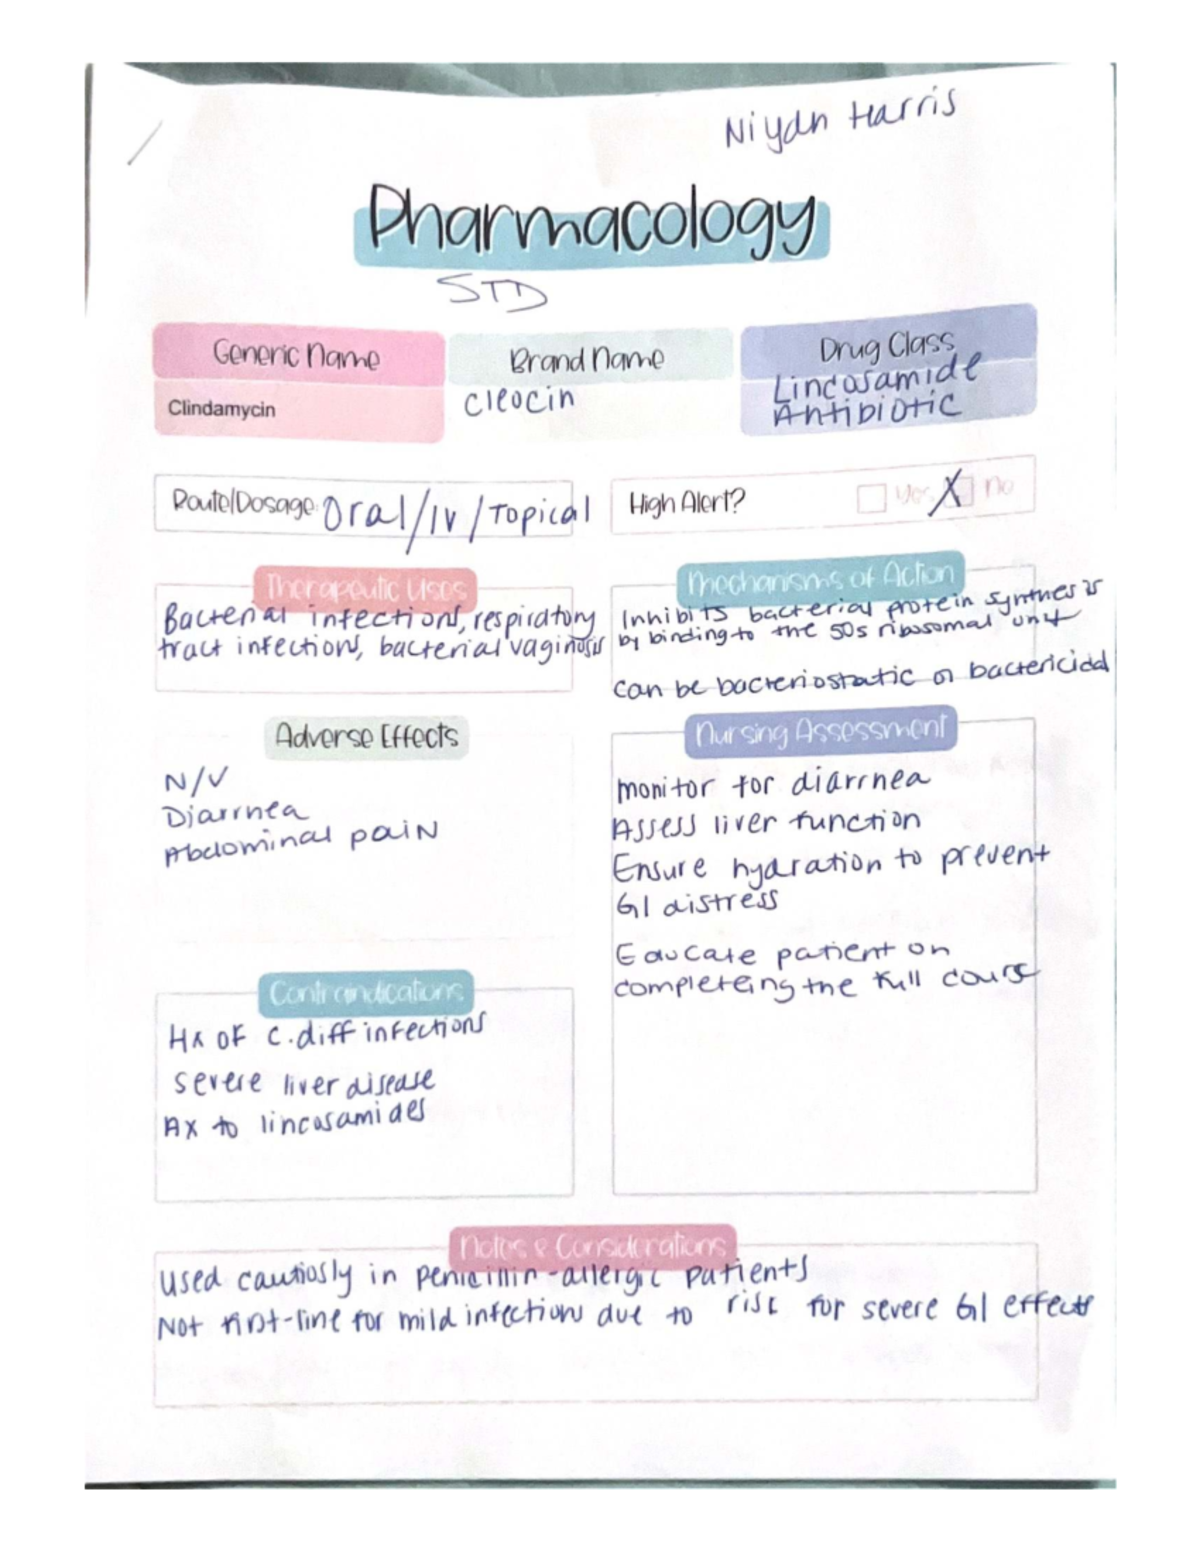 Niyan Harris
Pharmacology
STD
Generic Name
Clindamycin
Brand Name
Cleocin
Drug Class
Lincosamide
Antibiotic
Route/Dosage: Oral/IV/Topical
High Alert? Yes X No
Therapeutic Uses
Bacterial infections, respiratory
tract infections, bacterial vaginosis
Mechanisms of Action
Inhibits bacterial protein synthesis
by binding to the 50s ribosomal unit
can be bacteriostatic or bactericidal
Adverse Effects
N/V
Diarrhea
Abdominal pain
Nursing Assessment
monitor for diarrhea
Assess liver function
Ensure hydration to prevent
GI distress
Educate patient on
completeing the full course
Contraindications
Hx of C.diff infections
severe liver disease
Ax to lincosamides
Notes & Considerations
used cautiosly in penicillin-allergic patients
Not first-line for mild infections due to risk for severe GI effects